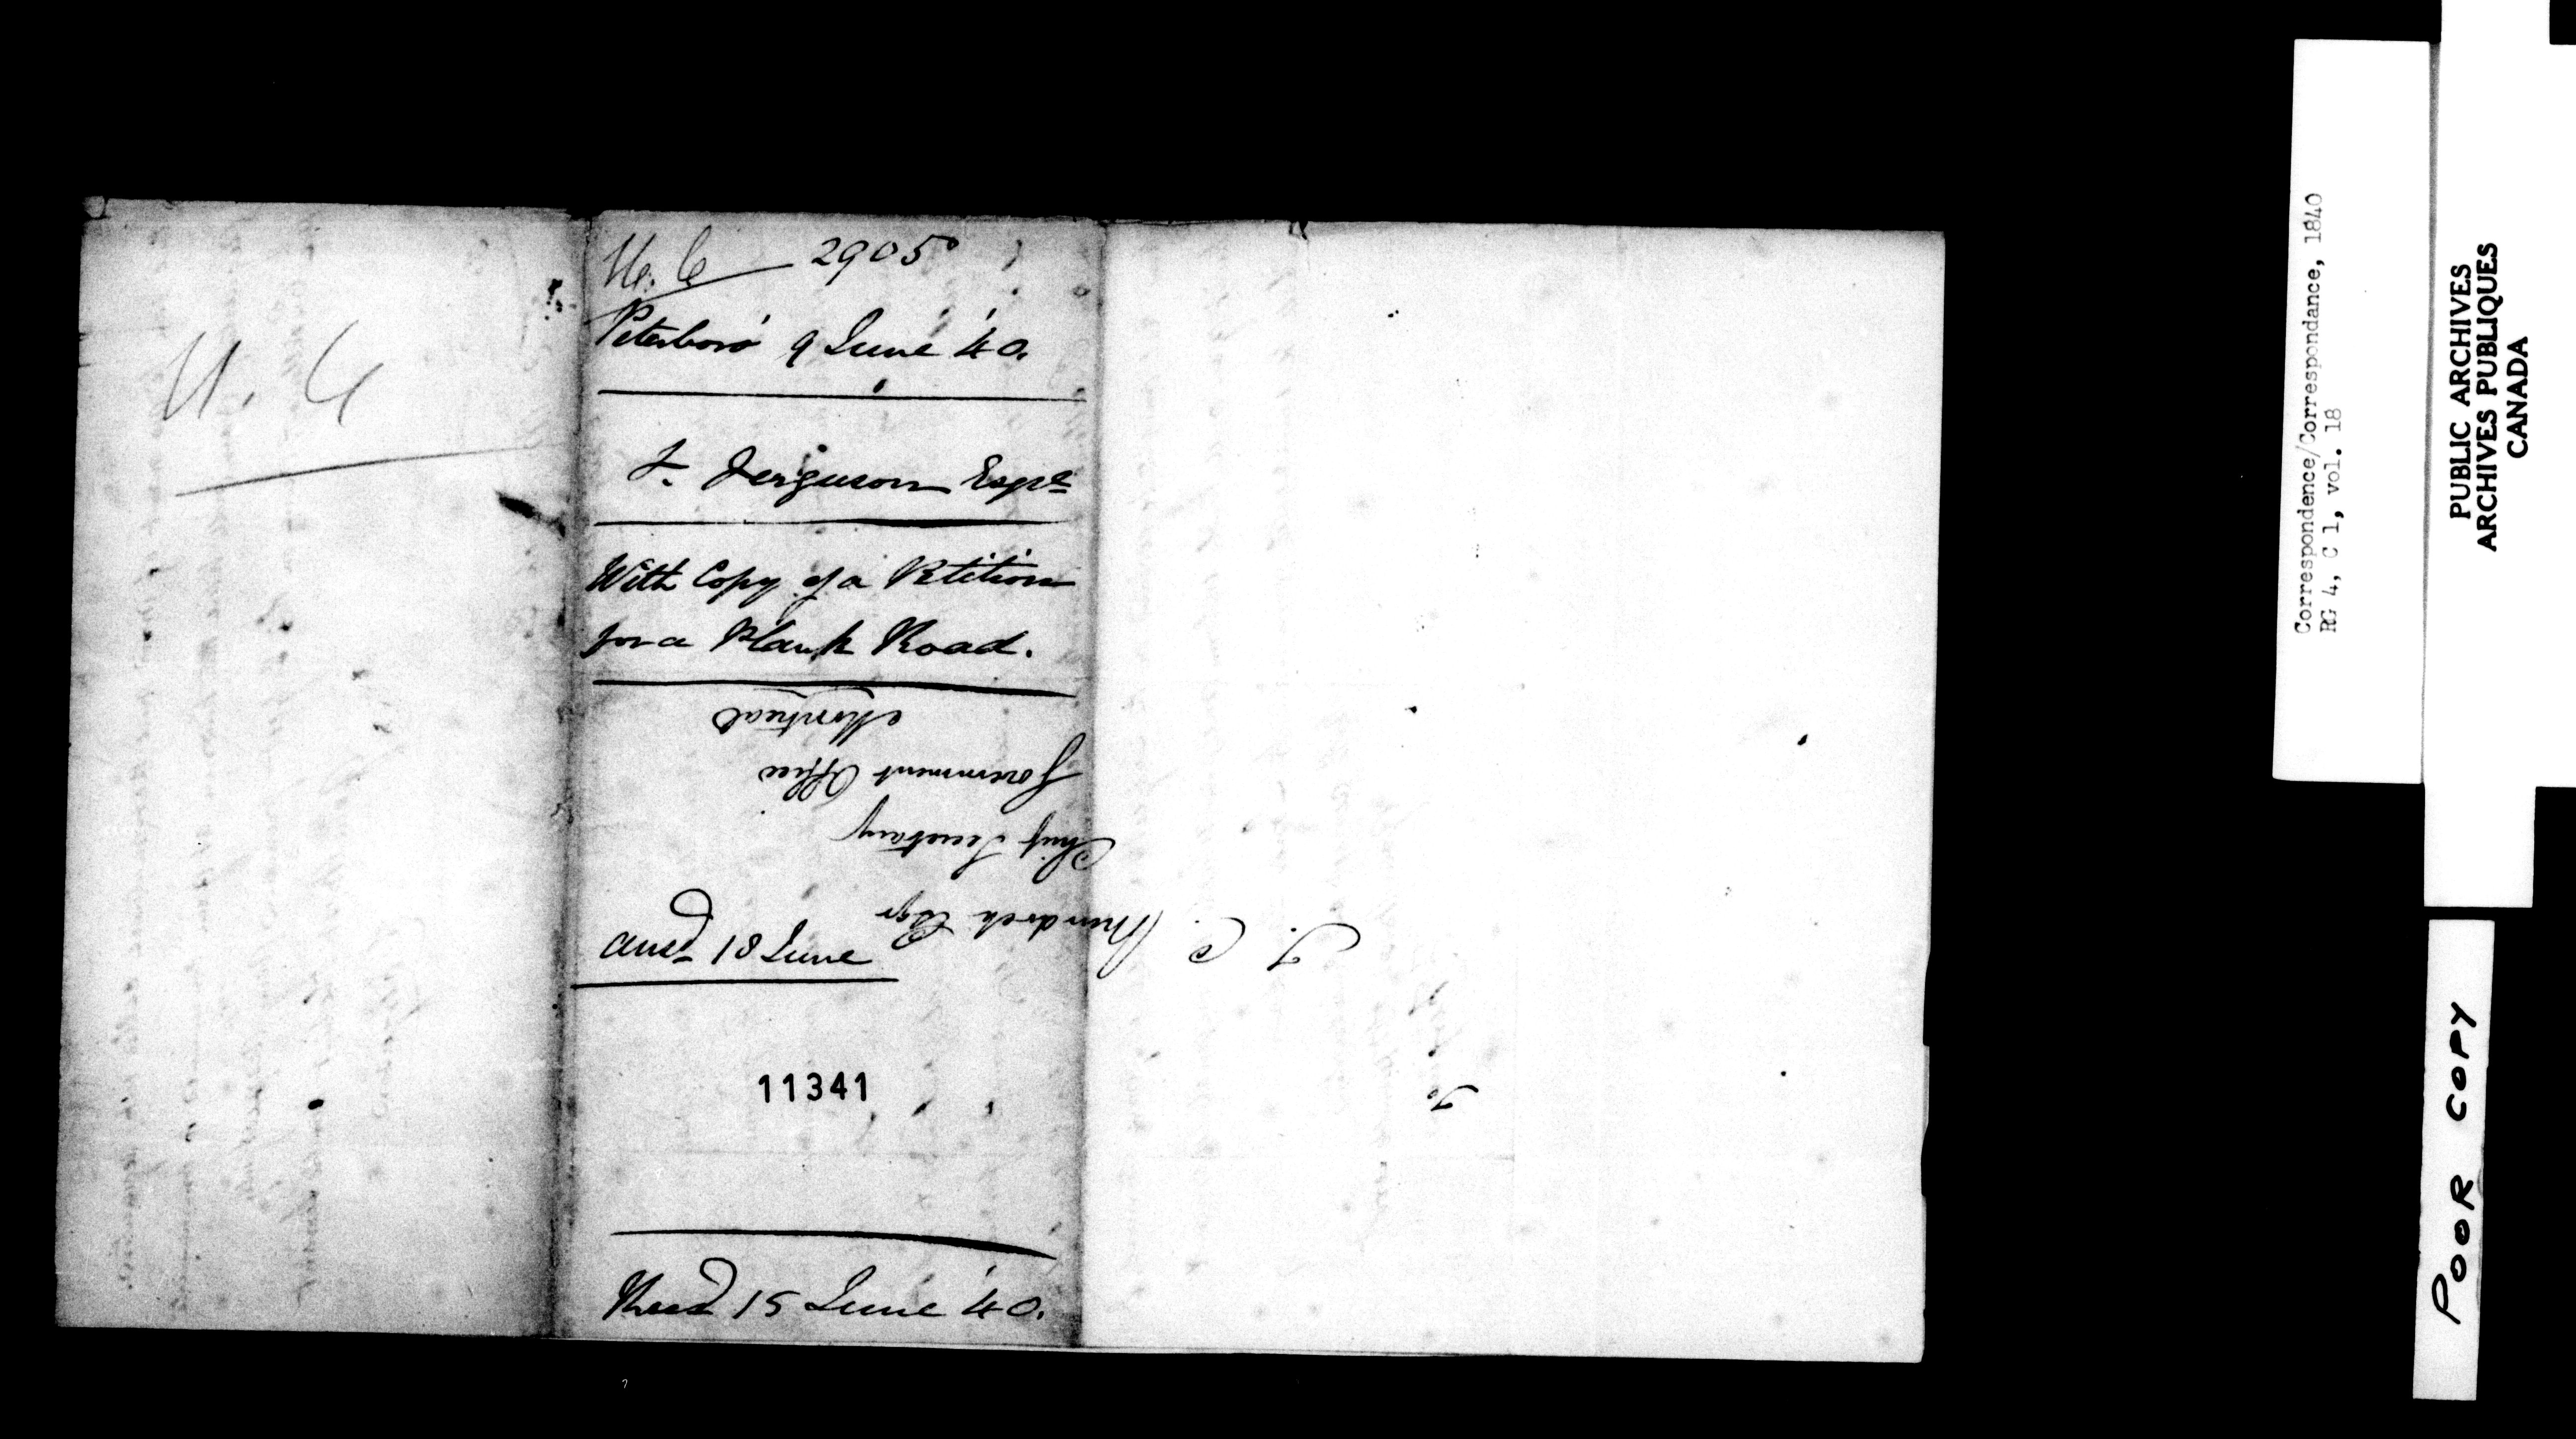 U. C
U. C 2905
Peterboro' 9 June '40.
F. Ferguson Esqre
With Copy of a Petition
for a Plank Road.
To
T. C. Murdoch Esqr
Chief Secretary
Government Office
Montreal
Ansd 18 June
11341
Recd 15 June '40.
Correspondence/Correspondance, 1840
RG 4, C 1, vol. 18
PUBLIC ARCHIVES
ARCHIVES PUBLIQUES
CANADA
POOR COPY